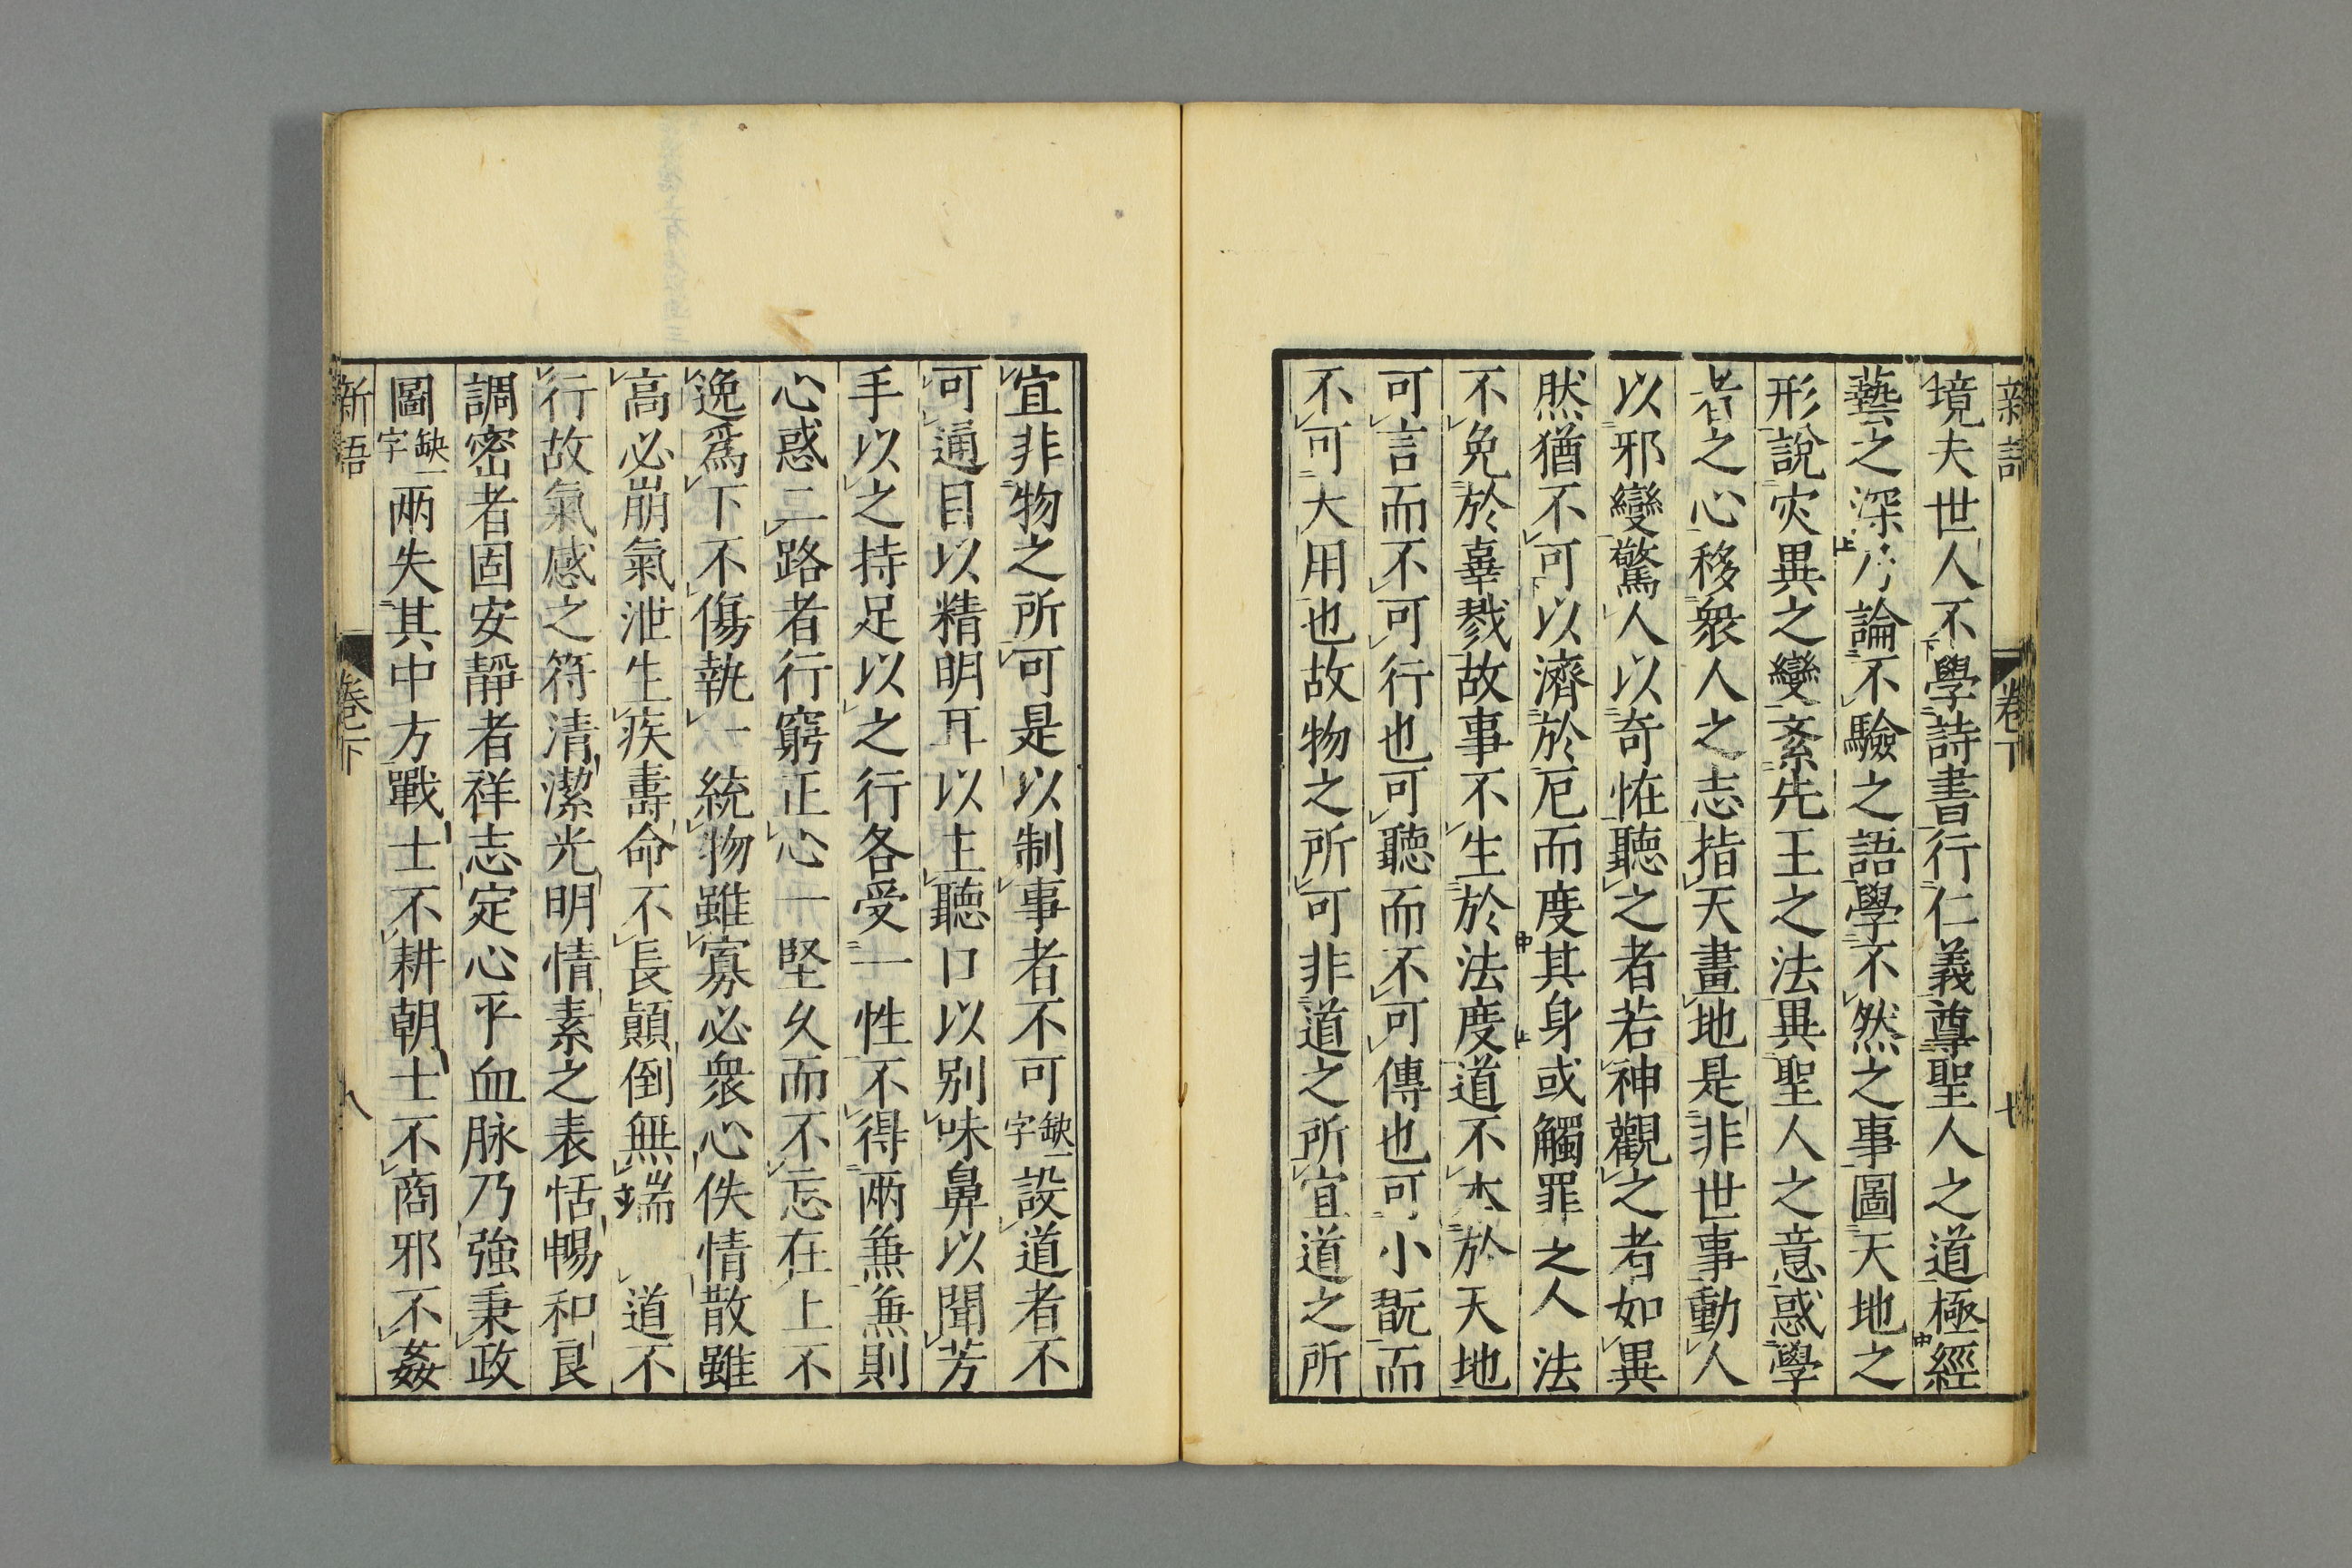 新語 卷下 七
境夫世人不學詩書行仁義尊聖人之道極經
藝之深乃論不驗之語學不然之事圖天地之
形說灾異之變紊先王之法異聖人之意惑學
者之心移衆人之志指天畫地是非世事動人
以邪變驚人以奇恠聽之者若神觀之者如異
然猶不可以濟於厄而度其身或觸罪之人法
不免於辜戮故事不生於法度道不本於天地
可言而不可行也可聽而不可傳也可小翫而
不可大用也故物之所可非道之所宜道之所
宜非物之所可是以制事者不可缺一字設道者不
可通目以精明耳以主聽口以别味鼻以聞芳
手以之持足以之行各受一性不得兩兼兼則
心惑二路者行窮正心一堅久而不忘在上不
逸爲下不傷執一統物雖寡必衆心佚情散雖
高必崩氣泄生疾壽命不長顛倒無端 道不
行故氣感之符清潔光明情素之表恬暢和良
調密者固安靜者祥志定心平血脉乃強秉政
圖缺一字兩失其中方戰士不耕朝士不商邪不姦
新語 卷下 八